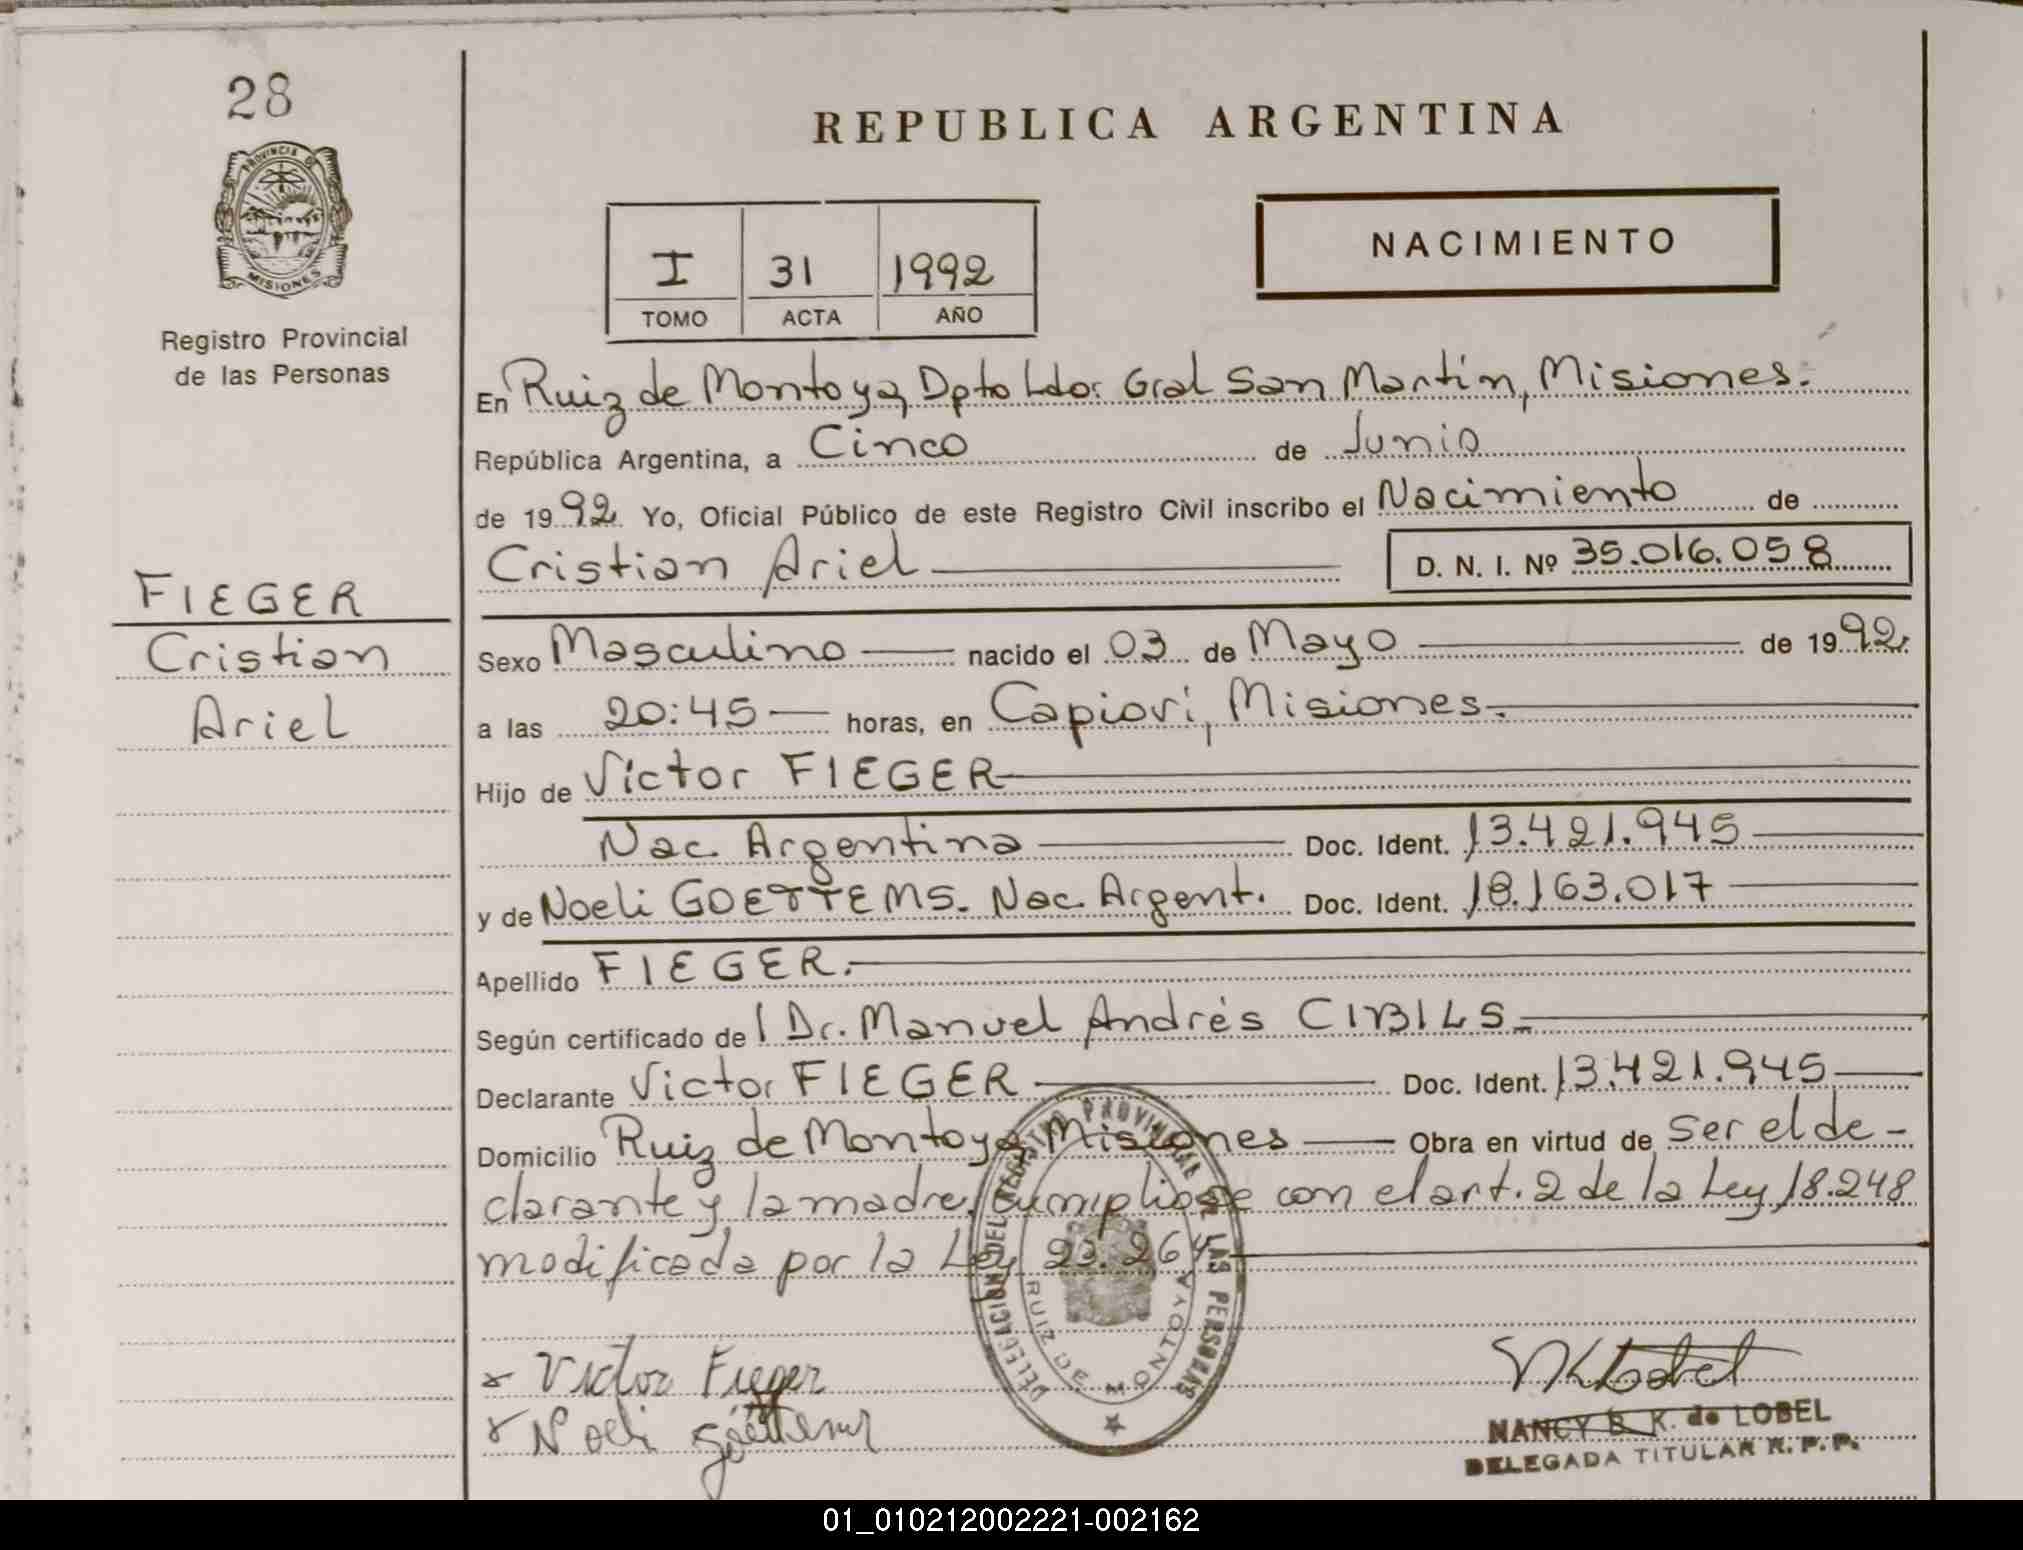 28
REPUBLICA ARGENTINA
PROVINCIA DE
MISIONES
NACIMIENTO
I 31 1992
TOMO ACTA AÑO
Registro Provincial
de las Personas
En Ruiz de Montoya, Dpto Ldor Gral San Martín, Misiones.
República Argentina, a Cinco de Junio
de 1992 Yo, Oficial Público de este Registro Civil inscribo el Nacimiento de
Cristian Ariel D. N. I. Nº 35.016.058
FIEGER
Cristian
Ariel
Sexo Masculino nacido el 03 de Mayo de 1992.
a las 20:45 horas, en Capioví, Misiones.
Hijo de Víctor FIEGER
Nac. Argentina Doc. Ident. 13.421.945
y de Noeli GOETTEMS. Nac. Argent. Doc. Ident. 18.163.017
Apellido FIEGER.
Según certificado del Dr. Manuel Andrés CIBILS.
Declarante Victor FIEGER Doc. Ident. 13.421.945
Domicilio Ruiz de Montoya Misiones Obra en virtud de ser el de-
clarante y la madre, cumpliose con el art. 2 de la Ley 18.248
modificada por la Ley 23.264
DELEGACION DEL REGISTRO PROVINCIAL DE LAS PERSONAS
RUIZ DE MONTOYA
x Victor Fieger
x Noeli Goettems
NKLobel
NANCY B. K. de LOBEL
DELEGADA TITULAR R. P. P.
01_010212002221-002162